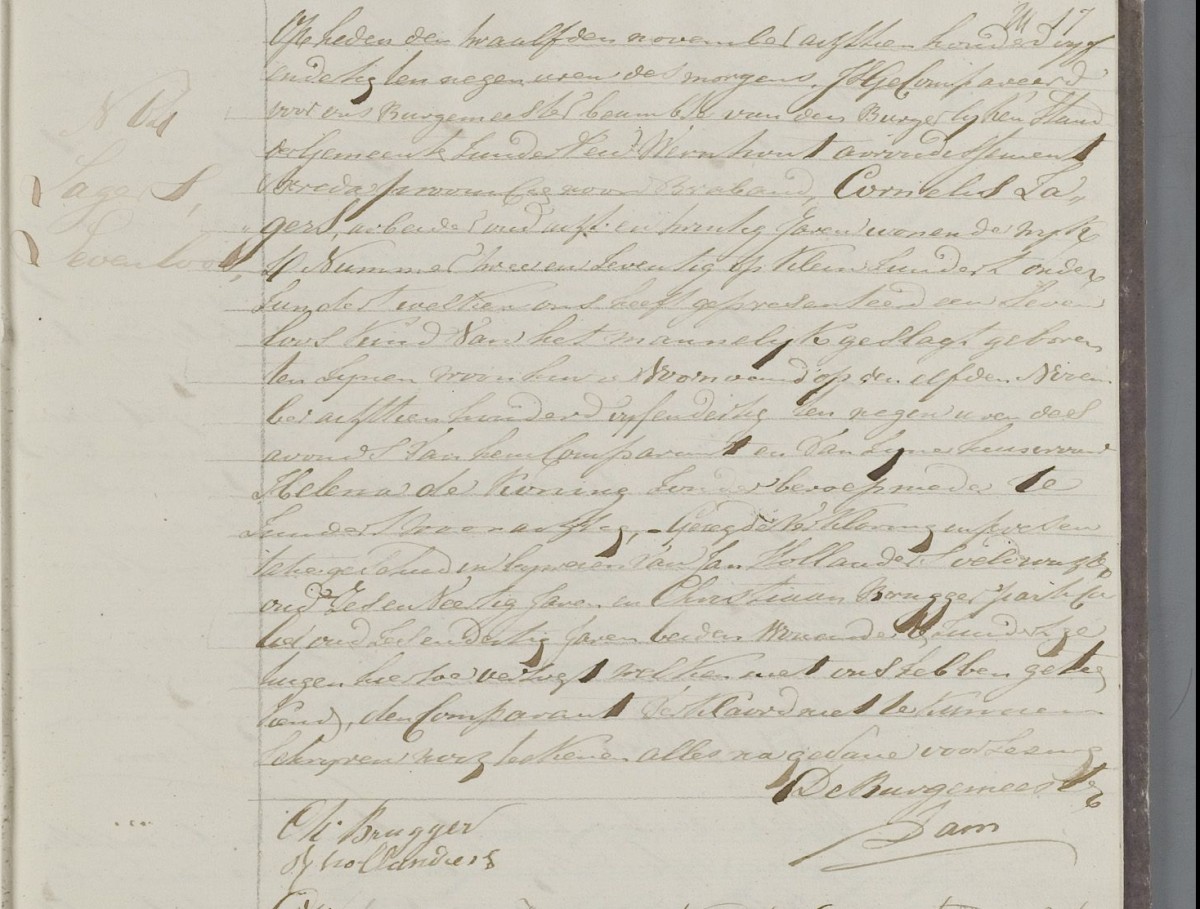 17
Op heden den twaalfden november achttien honderd vyf
endertig ten negen uren des morgens, is gecompareerd
voor ons Burgemeester beambte van den Burgerlyken Stand
der Gemeente Zundert en Wernhout arrondissement
Breda provincie noord Braband, Cornelus La„
gers, arbeider oud acht en twintig Jaren wonende wyk
N
Lagers,
Levenloos,
Nummer twee en Zeventig op klein Zundert onder
Zundert welken ons heeft gepresenteerd een Leven
loos Kind van het mannelyk geslagt geboren
ten Zynen woonhuize voornoemd op den elfden Novem
ber achttien honderd vyfendertig ten negen uren des
avonds van hem Comparant en van Zyne huisvrouw
Helena de Koning Zonder beroep mede te
Zundert woonachtig, Gezegde verklaring en presen
tatie geschied in bywezen van Jan Hollanders veldwagter
oud Zes en Veertig Jaren en Christiaan Brugger particu
lier oud Zes en Dertig Jaren beiden Wonende te Zundert ge
tuigen hier toe verzogt welken met ons hebben geteg
kend, den Comparant verklaard niet te kunnen
Schryven nog tekenen alles na gedane voorlezing
De Burgemeester
Ch: Brugger
J Hollanders
Dam